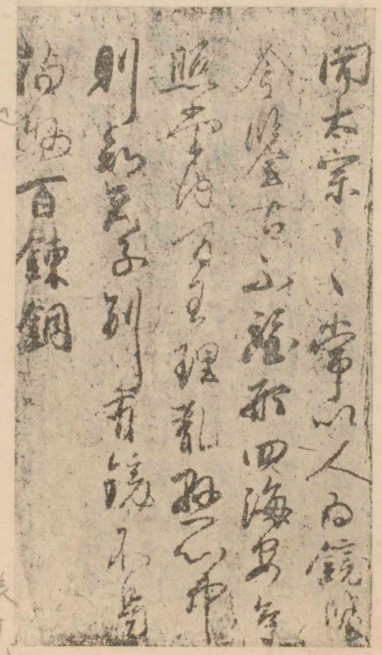 聞太宗〻〻常以人為鏡鑒
今鑒古不鑒形四海安危
照掌內百王理亂懸心中
則知天子別有鏡不是
揚州百鍊銅